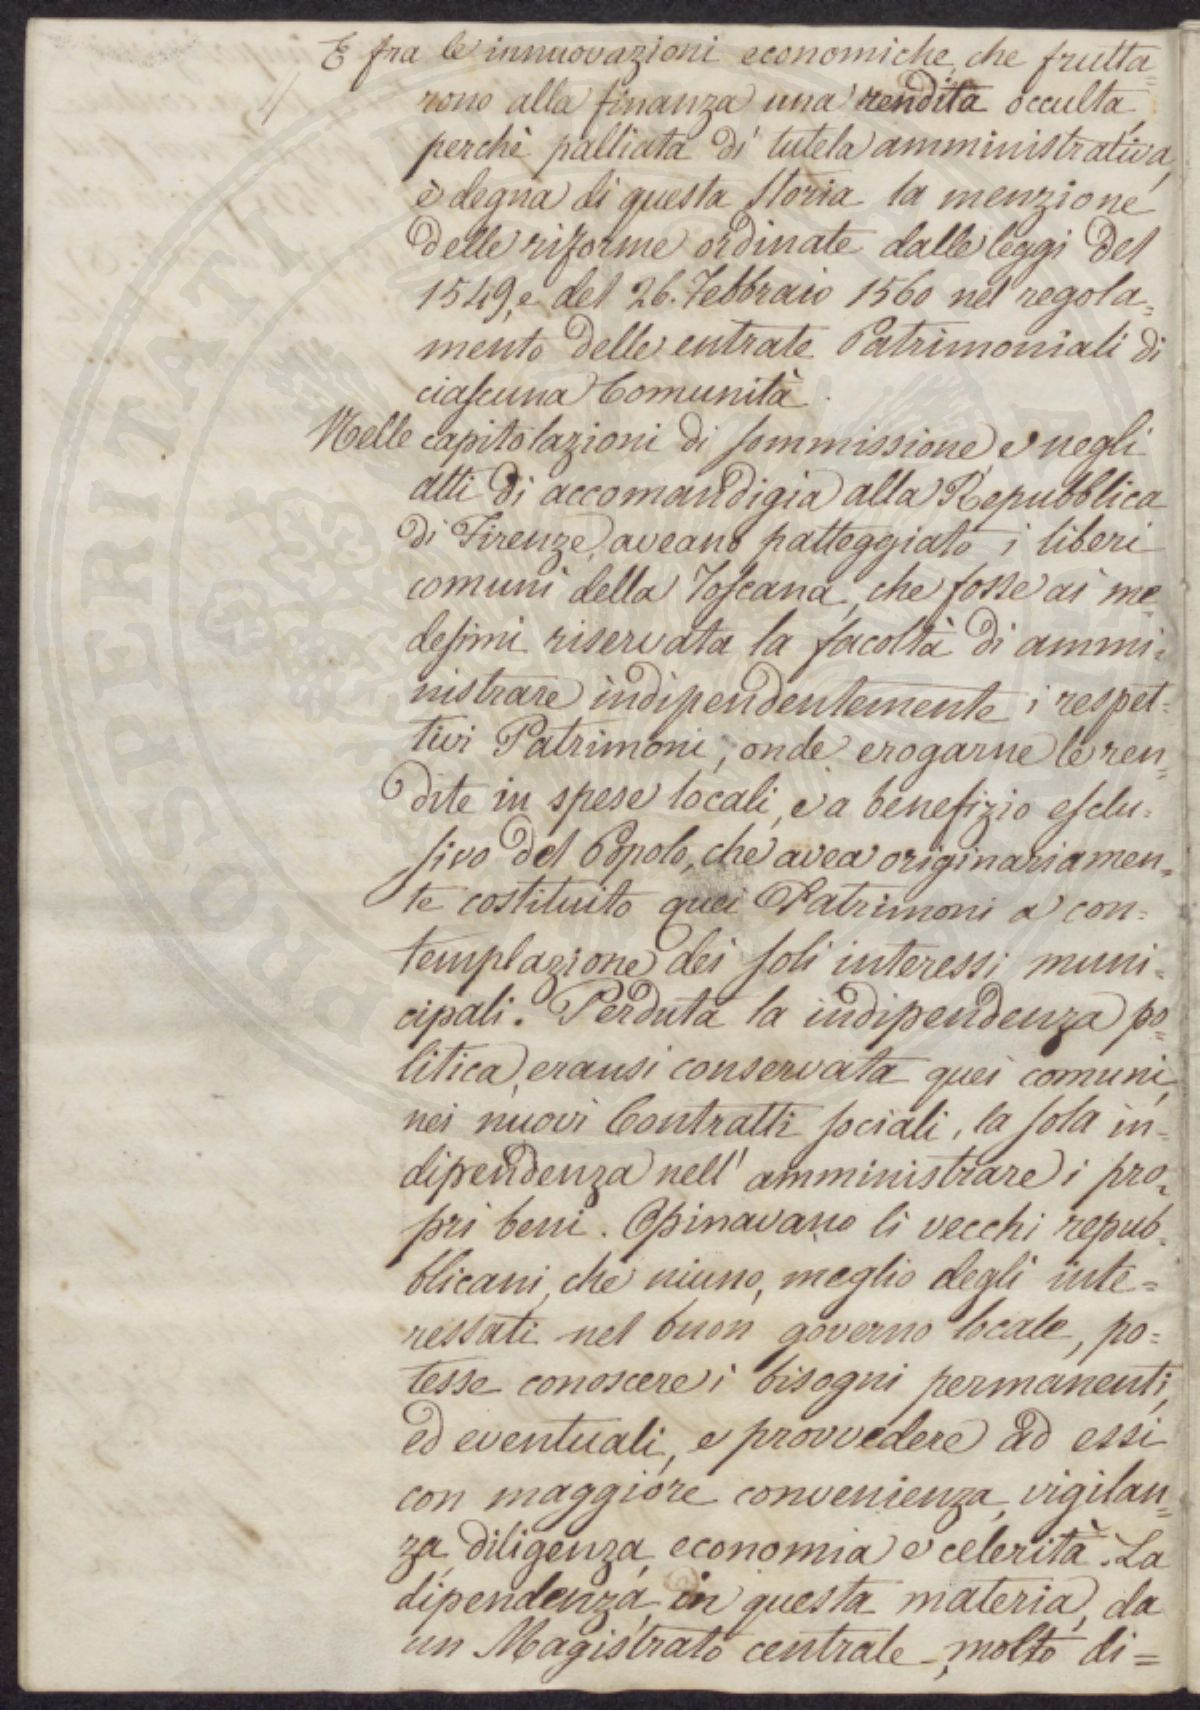 E fra le innuovazioni economiche, che frutta=
rono alla finanza una rendita occulta,
perchè palliata di tutela amministrativa,
è degna di questa Storia la menzione
delle riforme ordinate dalle leggi del
1549, e del 26. Febbraio 1560 nel regola=
mento delle entrate Patrimoniali di
ciascuna Comunità.
Nelle capitolazioni di sommissione e negli
atti di accomandigia alla Repubblica
di Firenze, aveano patteggiato i liberi
comuni della Toscana, che fosse ai me=
desimi riservata la facoltà di ammi=
nistrare indipendentemente i respet=
tivi Patrimoni, onde erogarne le ren=
dite in spese locali, e a benefizio esclu=
sivo del Popolo, che avea originariamen=
te costituito quei Patrimoni a con=
templazione dei soli interessi muni=
cipali. Perduta la indipendenza po=
litica, eransi conservata quei comuni,
nei nuovi Contratti sociali, la sola in=
dipendenza nell' amministrare i pro=
pri beni. Opinavano li vecchi repub=
blicani, che niuno, meglio degli inte=
ressati nel buon governo locale, po=
tesse conoscere i bisogni permanenti,
ed eventuali, e provvedere ad essi
con maggiore convenienza, vigilan=
za, diligenza, economia e celerità. La
dipendenza, in questa materia, da
un Magistrato centrale, molto di=
PROSPERITATI